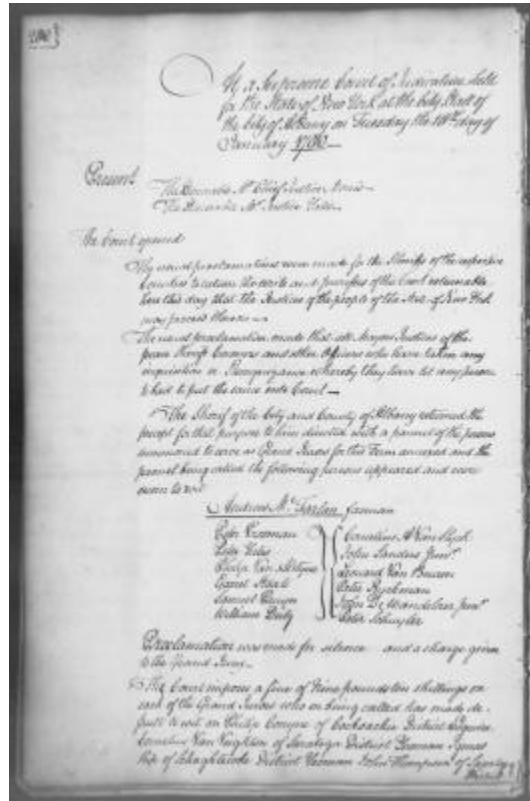 At a Supreme Court of Judicature held
for the State of New York at the City Hall of
the City of Albany on Tuesday the day of
January
Present
The Honorable Mr Chief Justice Morris
The Honorable Mr Justice Yates
The Court opened
The usual proclamations were made for the Sheriffs of the respective
Counties to return the writs and process of this Court returnable
here this day that the Justices of the people of the State of New York
may proceed thereon
The usual proclamation made that all Mayors Justices of the
peace Sheriffs Coroners and other Officers who have taken any
inquisition or Recognizance whereby they have let any person
to bail to put the same into Court
The Sheriff of the City and County of Albany returned the
precept for that purpose to him directed with a pannel of the persons
summoned to serve as Grand Jurors for this Term annexed and the
pannel being called the following persons appeared and were
sworn to wit
Andrew Mc Farlan foreman
Peter Vrooman
Cornelius A Van Slyck
Yates
John Sanders Junr.
Philip Van
Leonard Van Buren
Peter Ryckman
Samuel
John De Wandelaer Junr.
William
Peter Schuyler
Proclamation was made for silence and a charge given
to the Grand Jury
The Court impose a fine of Nine pounds ten shillings on
each of the Grand Jurors who on being called has made de-
fault to wit on Philip Conyne of Cocksackie District Esquire
Cornelius Van Veghten of Saratoga District Yeoman
of Schaghticoke District Yeoman John Thompson of Saratoga
District